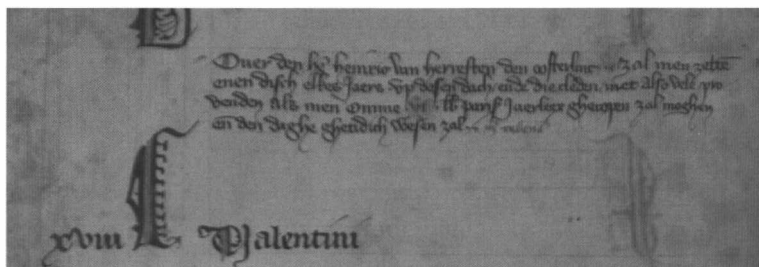 Ouer den he heinric van herresten den oosterlinc zal men zette
enen disch elkes Jaers vp desen dach ende die cleden met also vele pro
uenden als men omme lb paris Jaerlicx ghecopen zal moghen
en den daghe ghetidich wesen zal
xviii Valentini